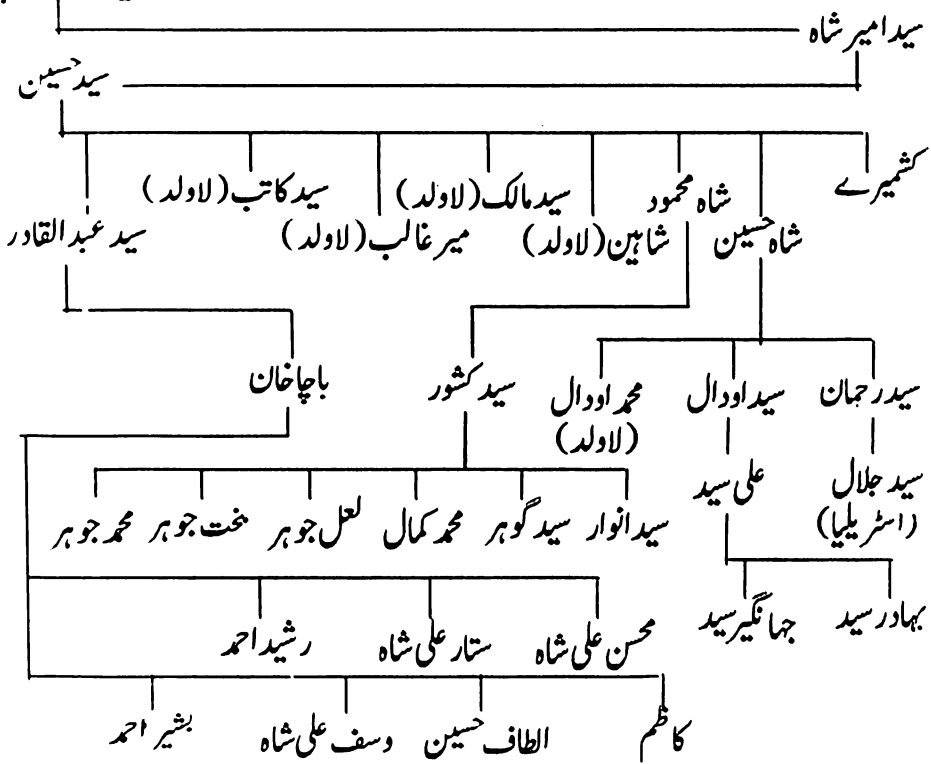 سید امیر شاہ
سید حسین
کشمیرے
شاہ محمود
سید مالک (لاولد)
سید کاتب (لاولد)
شاہ حسین
شاہین (لاولد)
میر غالب (لاولد)
سید عبدالقادر
سید رحمان
سید اودال
محمد اودال
(لاولد)
سید کشور
باچا خان
سید جلال
(اسٹریلیا)
علی سید
سید انوار
سید گوہر
محمد کمال
لعل جوہر
بخت جوہر
محمد جوہر
بہادر سید
جہانگیر سید
محسن علی شاہ
ستار علی شاہ
رشید احمد
کاظم
الطاف حسین
وسف علی شاہ
بشیر احمد